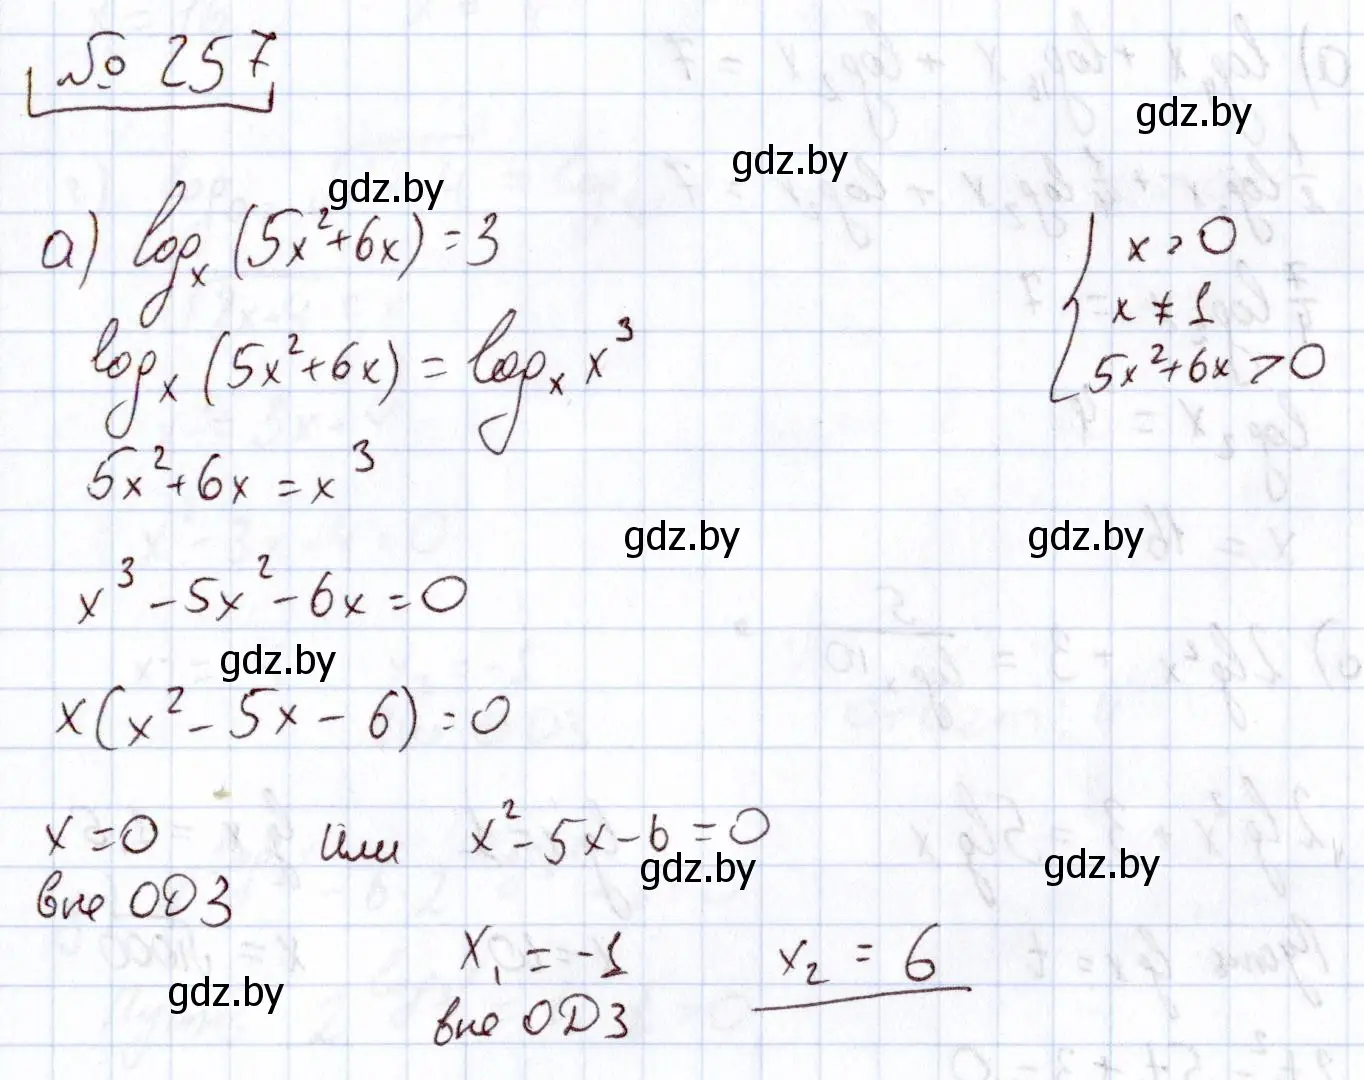 № 257
gdz.by
gdz.by
gdz.by
а) log_x (5x²+6x) = 3
{ x > 0
x ≠ 1
5x²+6x > 0
log_x (5x²+6x) = log_x x³
5x²+6x = x³
gdz.by
gdz.by
x³ - 5x² - 6x = 0
gdz.by
x(x² - 5x - 6) = 0
x = 0 или x² - 5x - 6 = 0
gdz.by
gdz.by
вне ОДЗ
x₁ = -1 x₂ = 6
gdz.by
вне ОДЗ